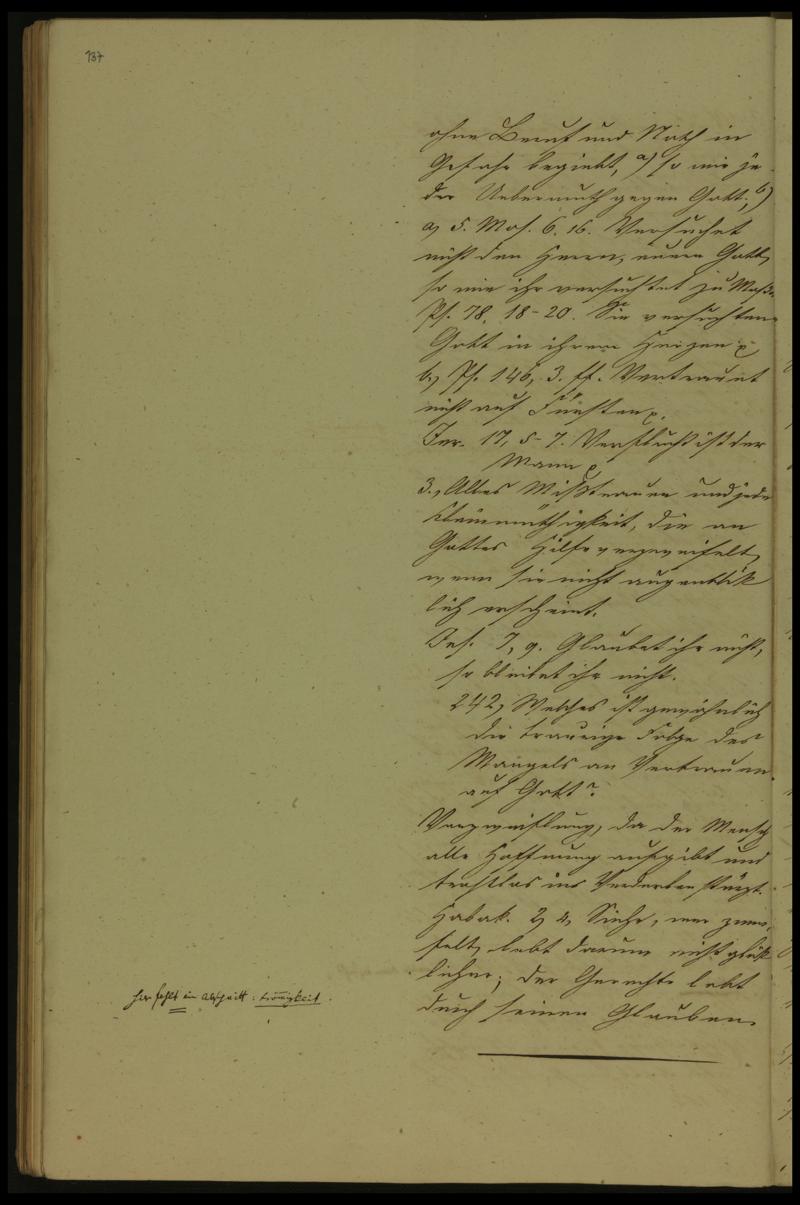 137
ohne Beruf und Noth in
Gefahr begiebt, a) so wie je
der Uebermuth gegen Gott; b)
a) 5. Mos. 6. 16. Versuchet
nicht den Herrn, euern Gott,
so wie ihr versuchtet zu Massa.
Ps. 78, 18-20. Sie versuchten
Gott in ihrem Herzen
b.) Ps. 146, 3. ff. Vertrauet
nicht auf Fürsten
Jer. 17, 5-7. Verflucht ist der
Mann
3., Alles Mißtrauen und jede
Kleinmüthigkeit, die an
Gottes Hilfe verzweifelt,
wenn sie nicht augenblik
lich erscheint.
Jes. 7, 9. Glaubet ihr nicht,
so bleibet ihr nicht.
242, Welches ist gewöhnlich
die traurige Folge des
Mangels an Vertrauen
auf Gott?
Verzweiflung, da der Mensch
alle Hoffnung aufgibt und
trostlos ins Verderben stürzt.
Habak. 2, 4, Siehe, wer zwei,
felt, lebt darum nicht glük
licher; der Gerechte lebt
durch seinen Glauben.
hier fehlt ein Abschnitt: